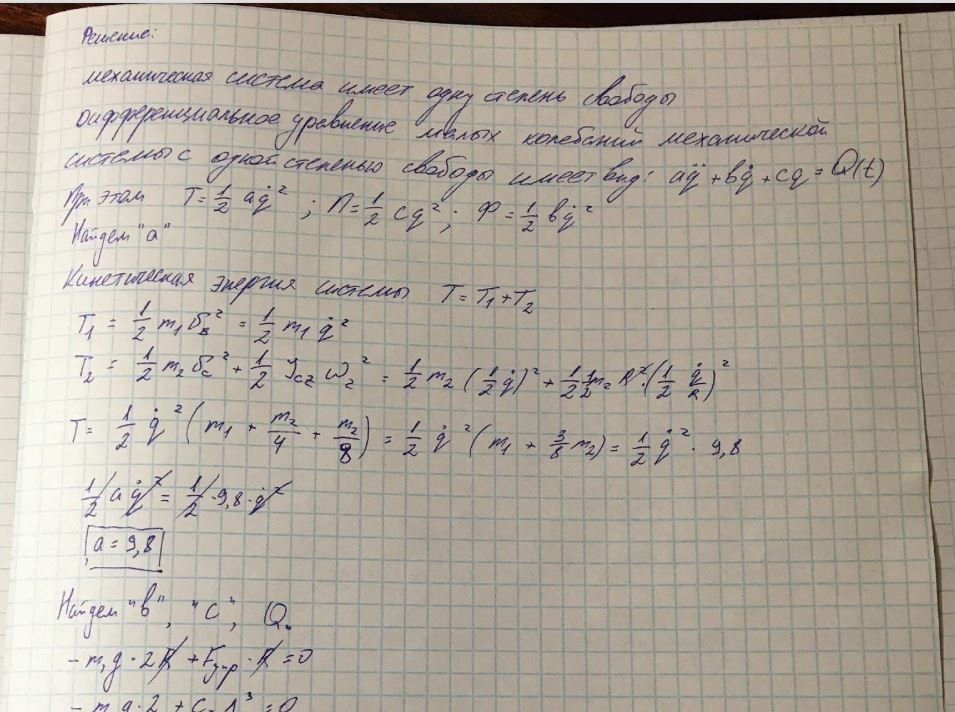 Решение:
механическая система имеет одну степень свободы
дифференциальное уравнение малых колебаний механической
системы с одной степенью свободы имеет вид: aq̈ + bq̇ + cq = Q(t)
При этом T = 1/2 aq̇² ; П = 1/2 cq² ; Ф = 1/2 bq̇²
Найдем "a"
Кинетическая энергия системы T = T₁ + T₂
T₁ = 1/2 m₁ v_B² = 1/2 m₁ q̇²
T₂ = 1/2 m₂ v_C² + 1/2 J_cz ω₂² = 1/2 m₂ (1/2 q̇)² + 1/2 · 1/2 m₂ R² · (1/2 q̇/R)²
T = 1/2 q̇² (m₁ + m₂/4 + m₂/8) = 1/2 q̇² (m₁ + 3/8 m₂) = 1/2 q̇² · 9,8
1/2 a q̇² = 1/2 · 9,8 · q̇²
a = 9,8
Найдем "b", "c", Q.
- m₁g · 2R + Fупр · R = 0
- m₁g · 2 + c · λ³ = 0